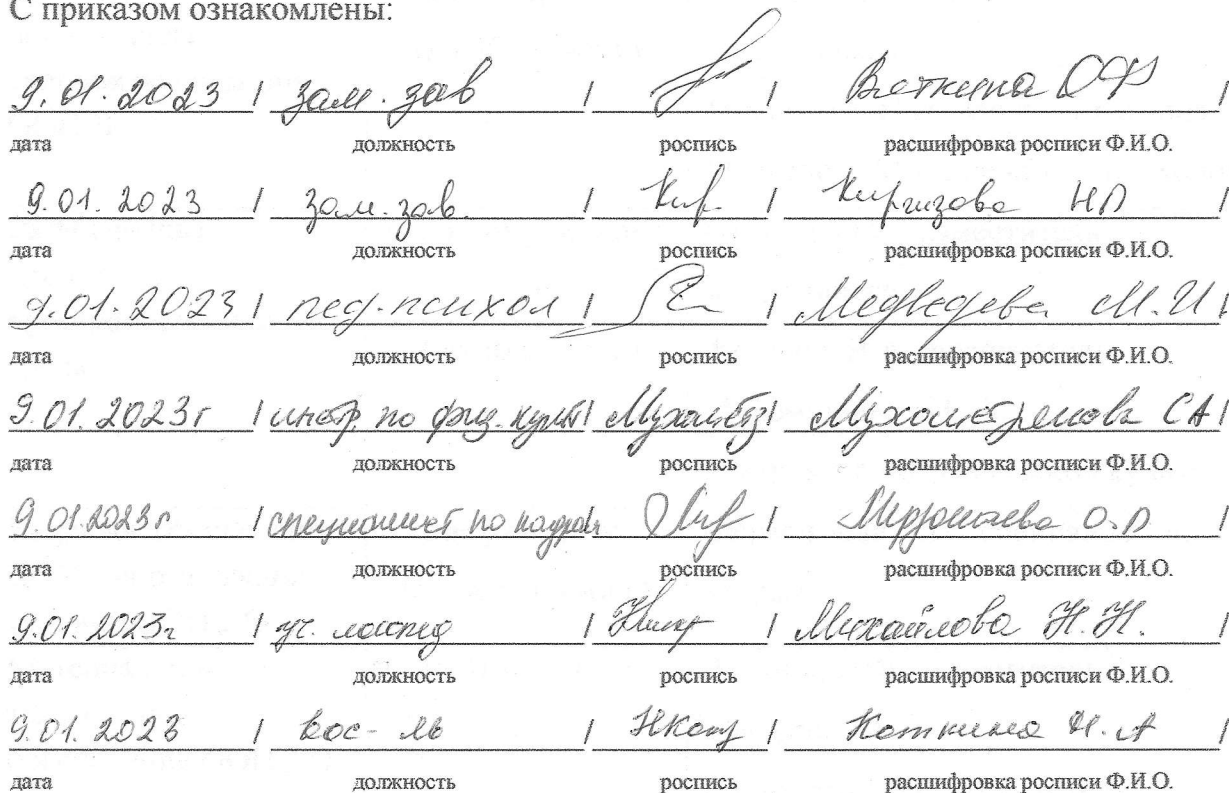 С приказом ознакомлены:
9.01.2023 / зам. зав / / Вяткина ОФ /
дата должность роспись расшифровка росписи Ф.И.О.
9.01.2023 / зам. зав. / Кир. / Киргизова НП /
дата должность роспись расшифровка росписи Ф.И.О.
9.01.2023 / пед-психол / / Медведева М.И /
дата должность роспись расшифровка росписи Ф.И.О.
9.01.2023г / инстр. по физ. культ / / СА /
дата должность роспись расшифровка росписи Ф.И.О.
9.01.2023г / специалист по кадрам / О.П /
дата должность роспись расшифровка росписи Ф.И.О.
9.01.2023г / уч. логопед / / Михайлова Н.Н. /
дата должность роспись расшифровка росписи Ф.И.О.
9.01.2023 / вос-ль / / Коткина Н.А /
дата должность роспись расшифровка росписи Ф.И.О.